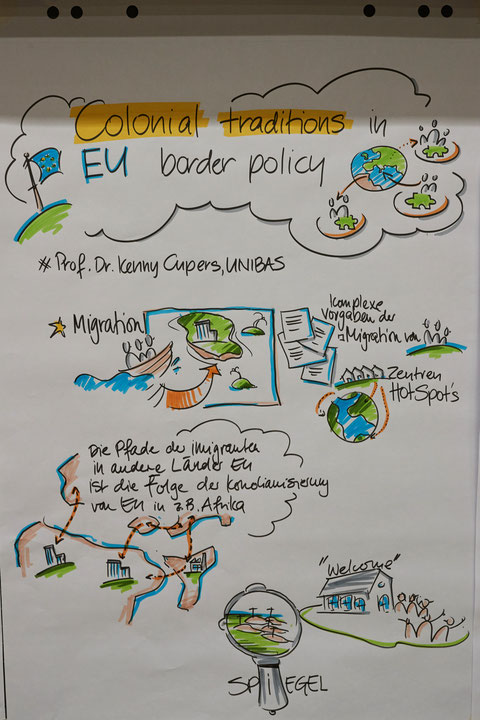 Colonial traditions in
EU border policy
* Prof. Dr. Kenny Cupers, UNIBAS
Migration
Komplexe
Vorgaben der
Migration von
Zentren
HotSpot's
Die Pfade der imigranten
in andere Länder EU
ist die Folge der
von EU in z.B. Afrika
"Welcome"
SPIEGEL